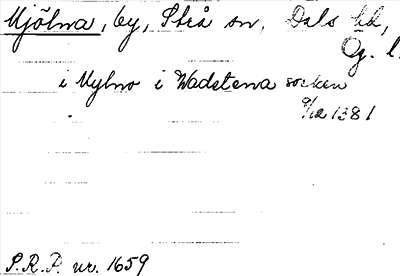 Mjölna, by, Strå sn, Dals hd,
Ög. l.
i Mylno i Wadstena socken
9/12 1381
S.R.P. nr. 1659